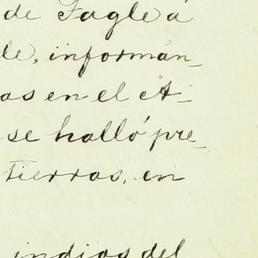 de Tagle á
le, informan_
as en el A-
se halló pre_
tierras, en
indios del